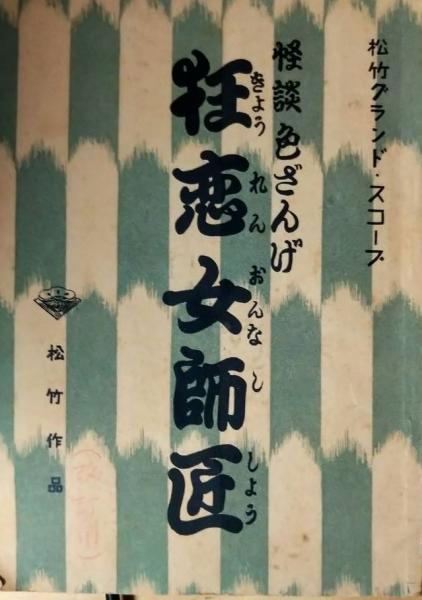 松竹グランド・スコープ
怪談色ざんげ
狂恋女師匠
きょう れん おんな し しょう
松竹作品